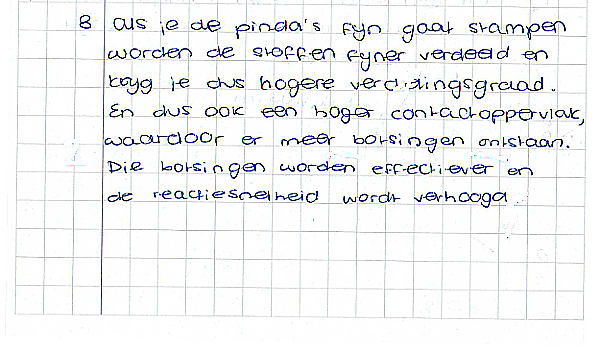 8 als je de pinda's fyn gaat stampen
worden de stoffen fyner verdeeld en
kryg je dus hogere verdelingsgraad.
En dus ook een hoger contactoppervlak,
waardoor er meer botsingen ontstaan.
Die botsingen worden effectiever en
de reactiesnelheid wordt verhoogd.